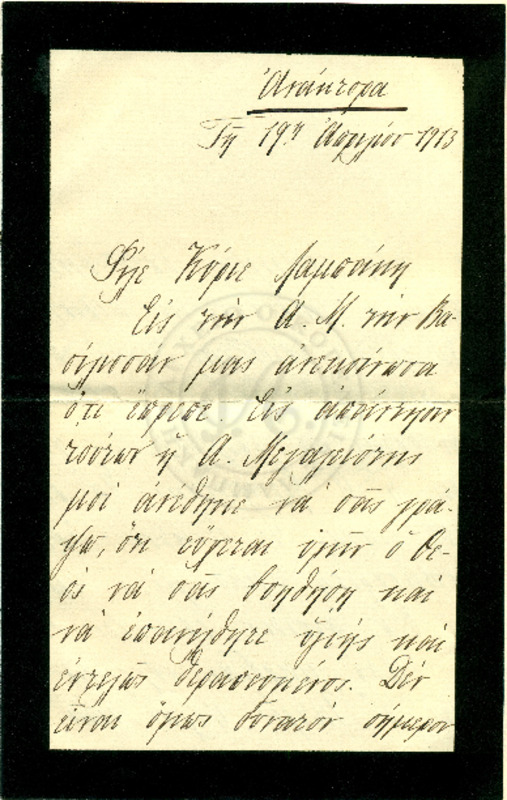 Ἀνάκτορα
Τῇ 19ῃ Ἀπριλίου 1913
Φίλε Κύριε Λαμπάκη
Εἰς τὴν Α. Μ. τὴν Βα-
σίλισσάν μας ἀνεκοίνωσα
ὅτι ἔπρεπε. Εἰς ἀπάντησιν
τούτων ἡ Α. Μεγαλειότης
μοὶ ἀνέθηκε νὰ σᾶς γρά-
ψω, ὅτι εὔχεται ὑμῖν ὁ Θε-
ὸς νὰ σᾶς βοηθήσῃ καὶ
νὰ ἐπανέλθητε ὑγιὴς καὶ
ἐντελῶς θεραπευμένος. Δὲν
εἶναι ὅμως δυνατὸν σήμερον